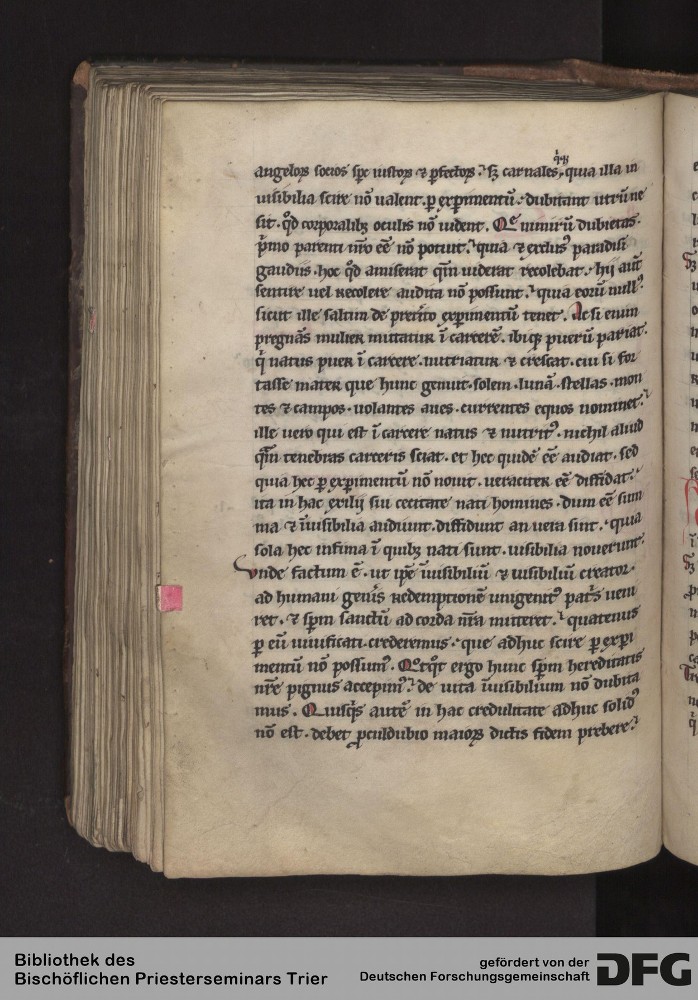 angeloꝝ socios spc̄ iustoꝝ ⁊ ꝑfectoꝝ. sꝫ carnales quia illa in
uisibilia scire nō ualent. ꝑ exꝑimentū. dubitant utrū ne
sit. qd̓ corporalibꝫ oculis nō uident. Que nimirū dubietas.
pͥmo parenti nr̄o eē nō potuit. quia ⁊ exclusꝰ paradisi
gaudiis. hoc qd̓ amiserat qm̄ uiderat recolebat. hii aut̄
sentire uel recolere audita nō possunt. quia eorū nullꝰ
sicut ille saltim de pret̓ito exꝑimentū tenet. Ac si enim
pregnās mulier mittatur ī carcerē. ibiqꝫ puerū pariat.
qͥ natus puer ī carcere. nutriatur ⁊ crescat. cui si for
tasse mater que hunc genuit. solem. lunā. stellas. mon
tes ⁊ campos. uolantes aues. currentes equos nominet.
ille uero qui est ī carcere natus ⁊ nutritꝰ. nichil aliud
qm̄ tenebras carceris sciat. et hec quidē eē audiat. sed
quia hec ꝑ exꝑimentū nō nouit. ueraciter eē diffidat.
ita in hac exilij sui cecitate nati homines. dum eē sum
ma ⁊ īuisibilia audiunt. diffidunt an uera sint. quia
sola hec infima ī quibꝫ nati sunt. uisibilia nouerunt.
Vnde factum ē. ut ip̄e īuisibiliū ⁊ uisibiliū creator.
ad humani geńis redemptionē unigenitꝰ patͥs ueni
ret. ⁊ sp̄m sanctū ad corda nr̄a mitteret. quatenus
ꝑ eū uiuificati. crederemus. que adhuc scire ꝑ exꝑi
mentū nō possumꝰ. Qͦtqͦt ergo hunc sp̄m hereditatis
nr̄e pignus accepimꝰ. de uita īuisibilium nō dubita
mus. Quisqͥs autē in hac credulitate adhuc solidꝰ
nō est. debet ꝓculdubio maioꝝ dictis fidem prebere.
Bibliothek des
Bischöflichen Priesterseminars Trier
gefördert von der
Deutschen Forschungsgemeinschaft
DFG